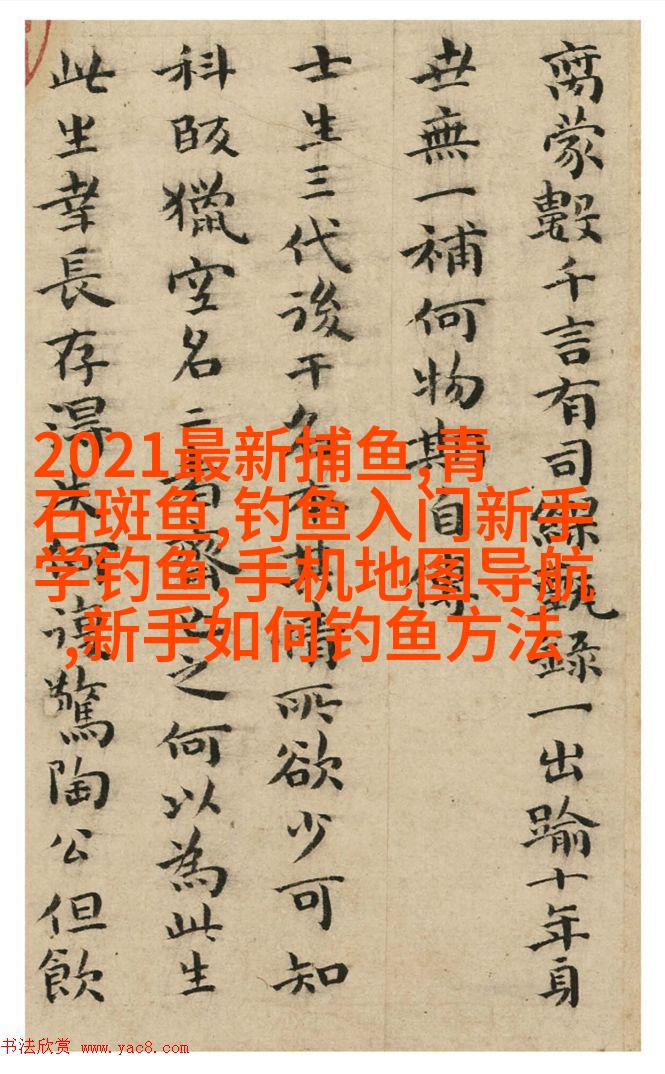 蒙數千言有司錄一出踰十年身
世無一補何物期自傳
士生三代後干名有其時所欲少可知
科獵空名二者之何以為此生
此生幸長存得失驚陶公但飲
2021最新捕鱼,青
石斑鱼,钓鱼入门新手
学钓鱼,手机地图导航
,新手如何钓鱼方法
书法欣赏 www.yac8.com